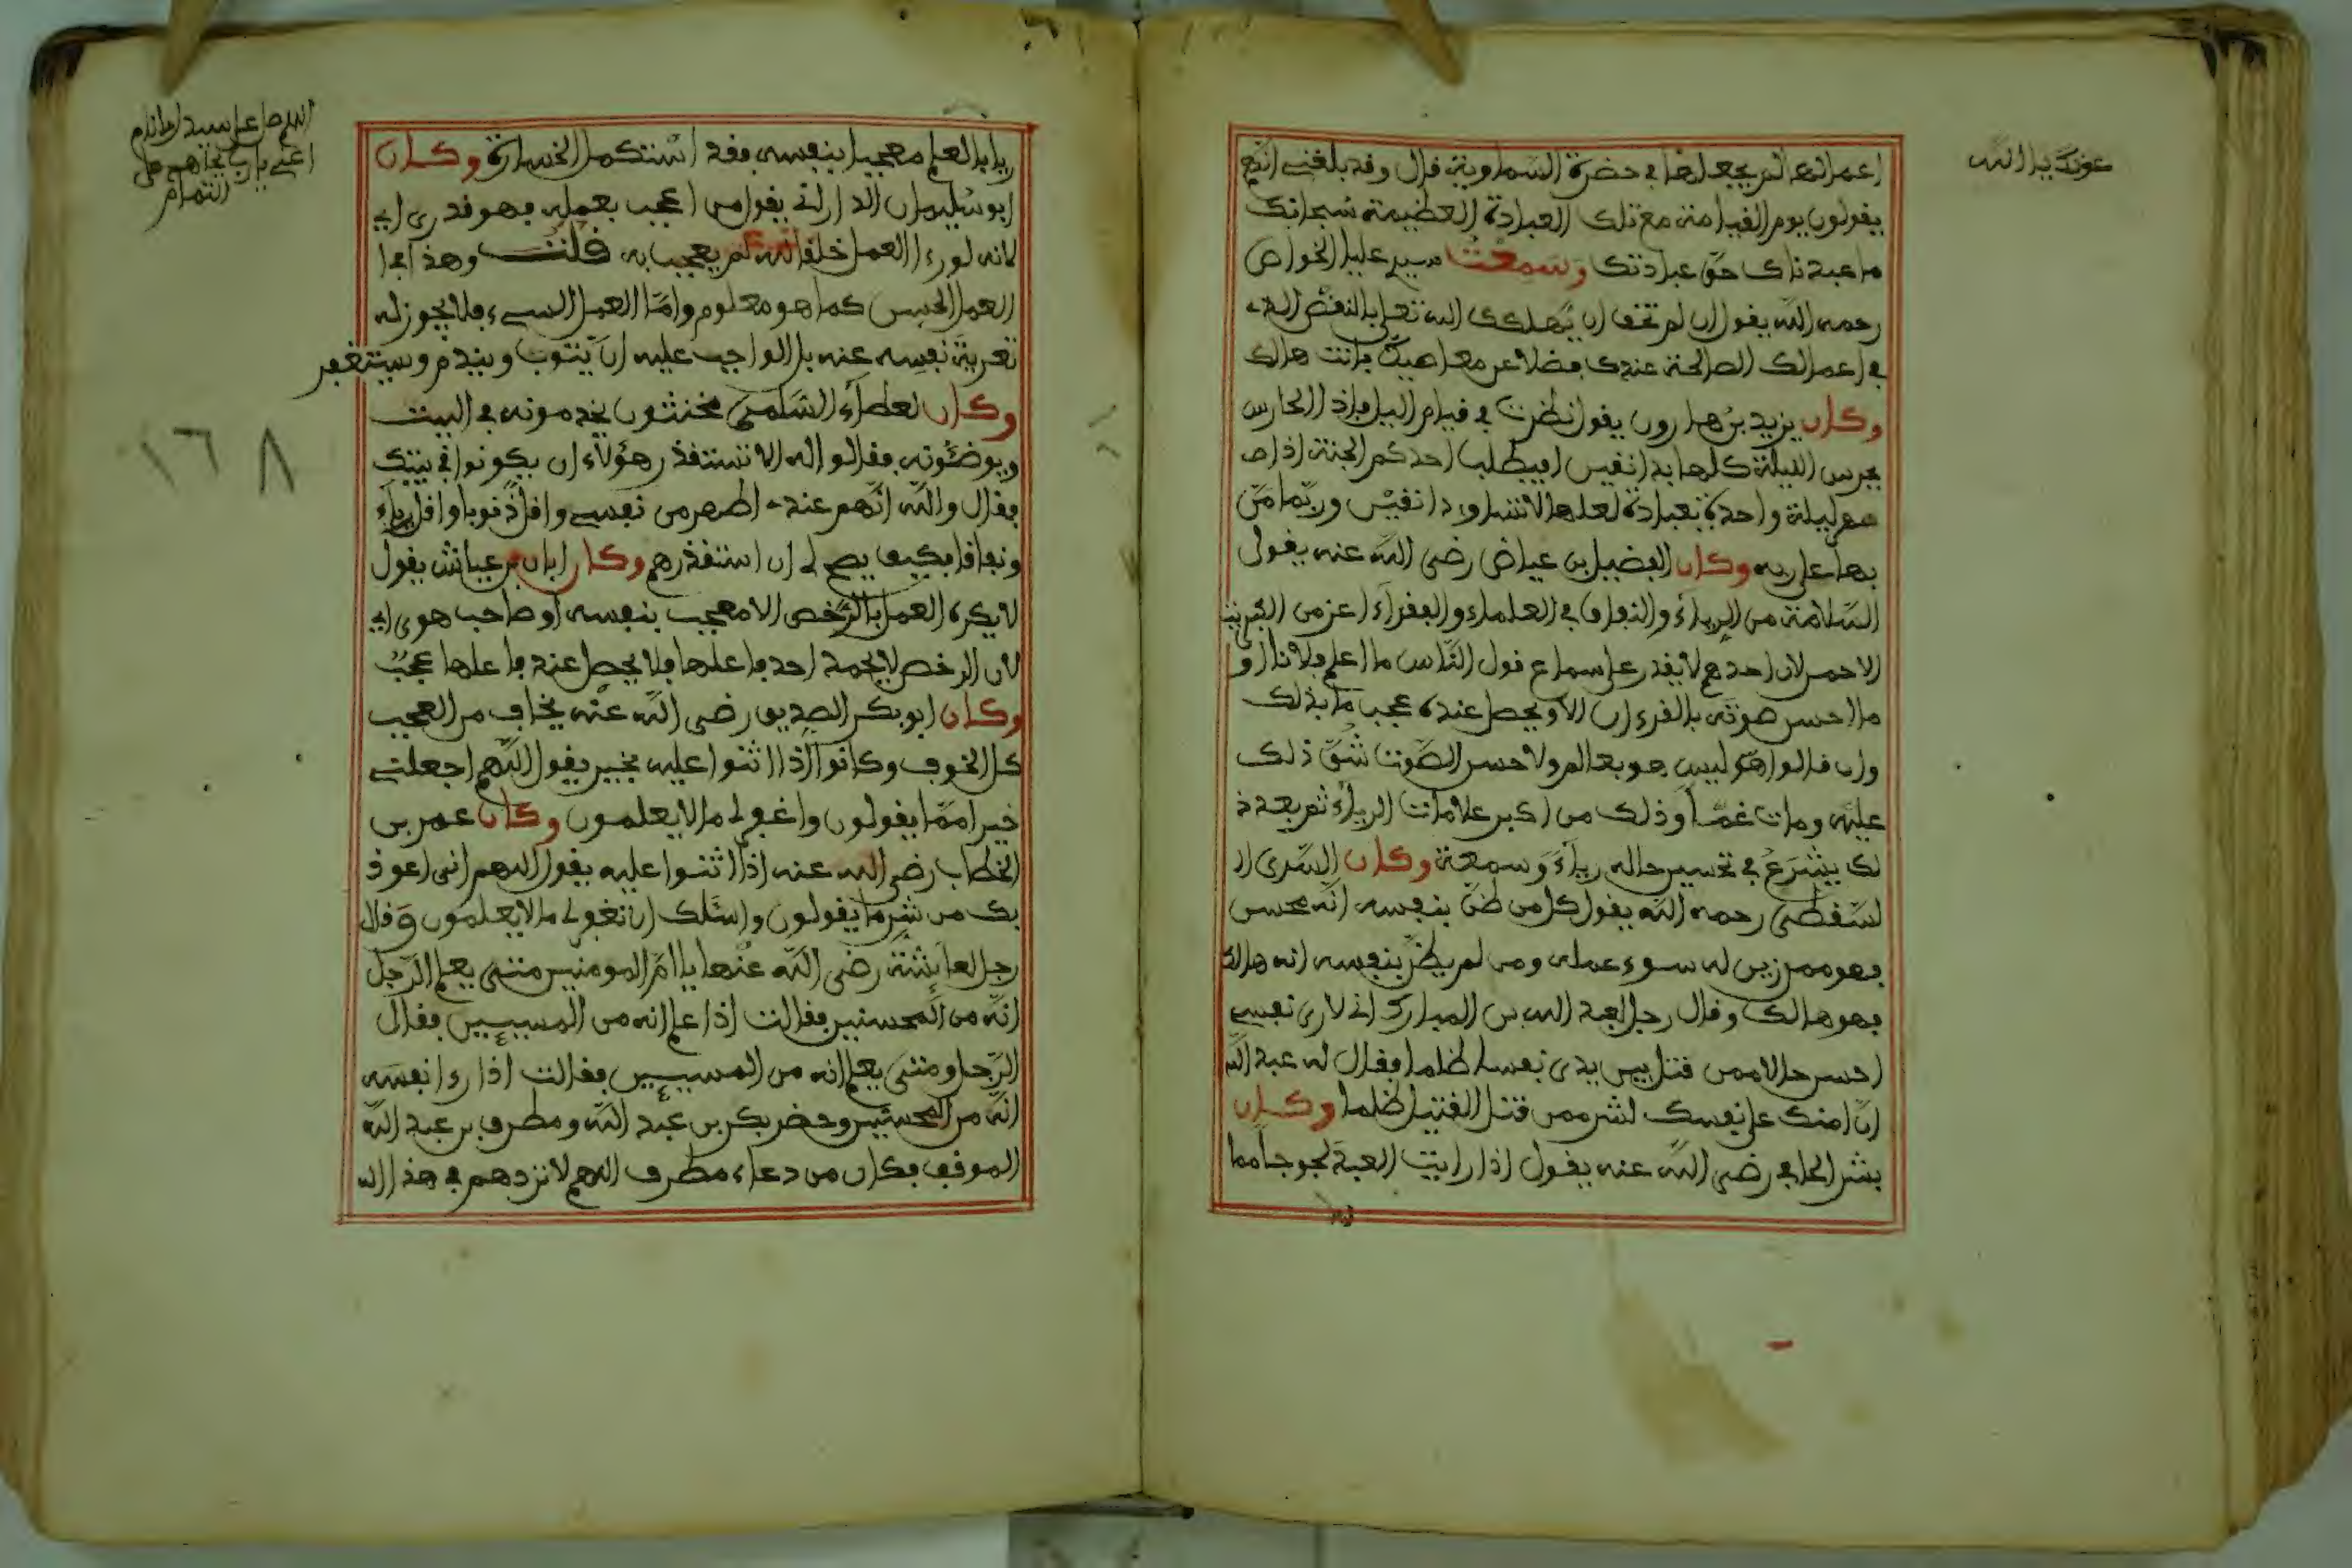 عونك يا الله
اعمالها لم يجعلها في حضرة السماوية قال وقد بلغني انهم
يقولون يوم القيامة مع تلك العبادة العظيمة سبحانك
ما عبدناك حق عبادتك وسمعت سيدي عليا الخواص
رحمه الله يقول ان لم تخف ان يهلكك الله تعلى بالنقص الذي
في اعمالك الصالحة عندك فضلا عن معاصيك فانت هالك
وكان يزيد بن هارون يقول نظرت في قيام الليل فاذا الحارس
يحرس الليلة كلها بدانقين افيطلب احدكم الجنة اذا صا
هم ليلة واحدة بعبادة لعلها لا تساوي دانقين وربما من
بها على ربه وكان الفضيل بن عياض رضي الله عنه يقول
السلامة من الرياء والنفاق في العلماء والفقراء اعز من الكبريت
الاحمر لان احدهم لا يقدر على سماع قول الناس ما اعلم فلانا او
ما احسن صوته بالقرءان الا ويحصل عنده عجب ما بذلك
وان قالوا هو ليس هو بعالم ولا حسن الصوت شق ذلك
عليه ومات غما وذلك من اكبر علامات الرياء ثم بعد ذ
لك يشرع في تحسين حاله رياء وسمعة وكان السري ال
لسقطي رحمه الله يقول كل من ظن بنفسه انه محسن
فهو ممن زين له سوء عمله ومن لم يظن بنفسه انه هالك
فهو هالك وقال رجل لعبد الله بن المبارك اني لارى نفسي
احسن حالا ممن قتل بين يدي نفسا ظلما فقال له عبد الله
ان امنك على نفسك لشر ممن قتل القتيل ظلما وكان
بشر الحافي رضي الله عنه يقول اذا رايت العبد لجوجا مما
اللهم صل على سيد الانام
اغثني يا رب بجاههم على
التمام
ريا بالعلم معجبا بنفسه فقد استكمل الخسارة وكان
ابو سليمان الداراني يقول من اعجب بعمله فهو قدري اي
لانه لو رءا العمل خلقا لله لم يعجب به قلت وهذا في ا
العمل الحسن كما هو معلوم واما العمل السيء فلا يجوز له
تعرية نفسه عنه بل الواجب عليه ان يتوب ويندم ويستغفر
وكان لعطاء السلمي مخنثون يخدمونه في البيت
ويوضئونه فقالوا له الا تستقذر هؤلاء ان يكونوا في بيتك
فقال والله انهم عندي اطهر من نفسي واقل ذنوبا واقل رياء
ونفاقا فكيف يصح لي ان استقذرهم وكان ابان بن عياش يقول
لا يكره العمل بالرخص الا معجب بنفسه او صاحب هوى اي
لان الرخص لا يحمد احد فاعلها فلا يحصل عند فاعلها عجب
وكان ابو بكر الصديق رضي الله عنه يخاف من العجب
كل الخوف وكانوا اذا اثنوا عليه بخير يقول اللهم اجعلني
خيرا مما يقولون واغفر لي ما لا يعلمون وكان عمر بن
الخطاب رضي الله عنه اذا اثنوا عليه يقول اللهم اني اعوذ
بك من شر ما يقولون واسئلك ان تغفر لي ما لا يعلمون وقال
رجل لعائشة رضي الله عنها يا ام المومنين متى يعلم الرجل
انه من المحسنين فقالت اذا علم انه من المسيئين فقال
الرجل ومتى يعلم انه من المسيئين فقالت اذا رءا نفسه
انه من المحسنين وحضر بكر بن عبد الله ومطرف بن عبد الله
الموقف فكان من دعاء مطرف اللهم لا تردهم في هذا ال
١٦٨